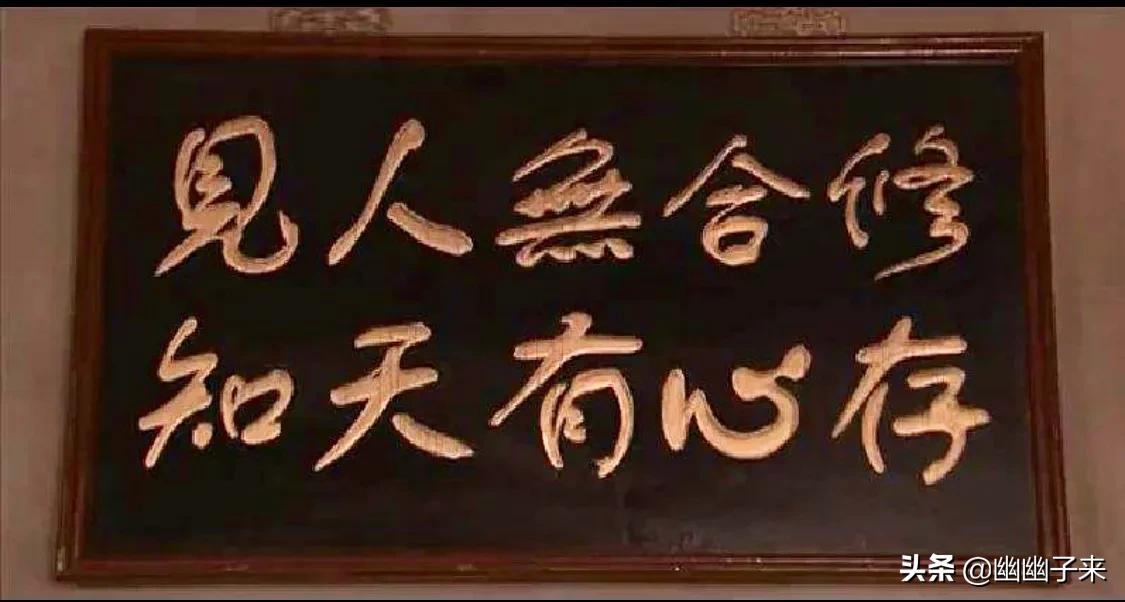 修合無人見
存心有天知
头条 @幽幽子来